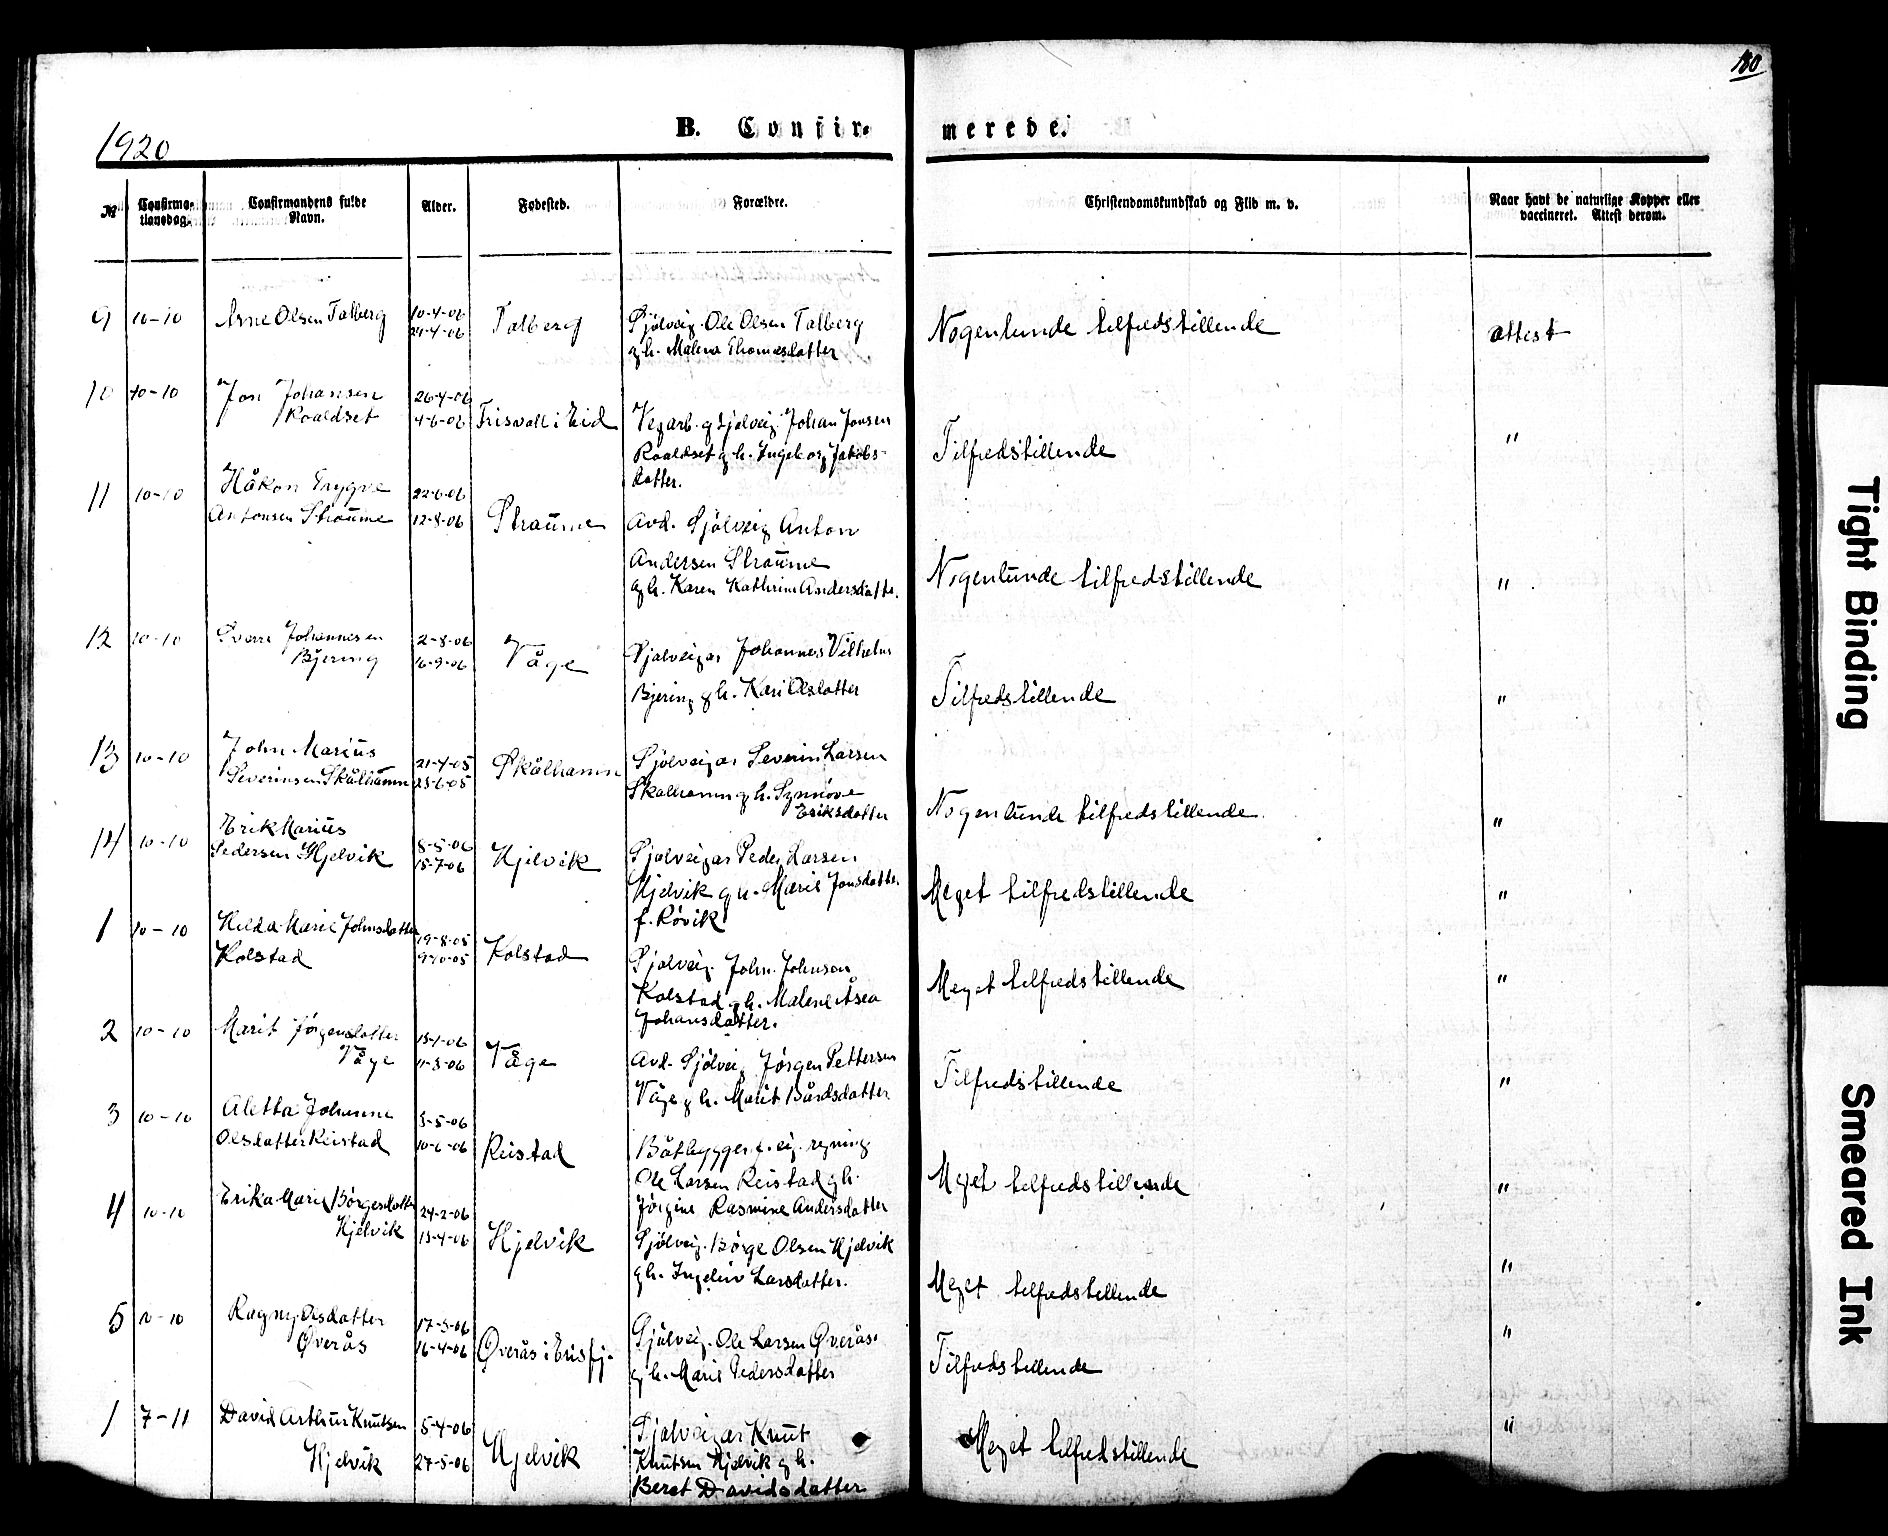 180
1920
B. Confir-
merede.
№
Confirma-
tionsdag.
Confirmandens fulde
Navn.
Alder.
Fødested.
Forældre.
Christendomskundskab og Flid m. v.
Naar havt de naturlige Kopper eller
vaccineret. Attest derom.
9 10-10 Arne Olsen Talberg 10-4-06 Talberg Sjölveig. Ole Olsen Talberg Nogenlunde tilfredstillende attest
24-4-06 gh. Malena Thomasdatter
10 10-10 Jon Johansen 26-4-06
Roaldset 4-6-06 Frisvoll i Eid Vegarb. g sjølveig. Johan Jonsen Tilfredstillende "
Roaldset g h. Ingeborg Jakobs-
datter.
11 10-10 Håkon Trygve 22-6-06
Antonsen Straume 12-8-06 Straume Avd. Sjölveig Anton
Andersen Straume Nogenlunde tilfredstillende "
gh. Karen Kathrine Andersdatter.
12 10-10 Sverre Johannesen 2-8-06
Bjering 16-9-06 Våge Sjølveigar Johannes Vilhelm
Bjering gh. Kari Olsdatter Tilfredstillende "
13 10-10 John Marius 21-4-05 Skålhamn Sjölveigar Severin Larsen
Severinsen Skålhamn 25-6-05 Skålhamn gh. Synnöve
Eriksdatter Nogenlunde tilfredstillende "
14 10-10 Erik Marius 8-5-06
Pedersen Hjelvik 15-7-06 Hjelvik Sjølveigar Peder Larsen
Hjelvik gh. Marie Jonsdatter Meget tilfredstillende "
f. Rövik
1 10-10 Hilda Marie Johnsdatter 19-8-05
Kolstad 9-10-05 Kolstad Sjølveig. John Johnson
Kolstad gh. Malene Åsea Meget tilfredstillende "
Johansdatter.
2 10-10 Marit Jørgensdatter 15-1-06
Våge 11-3-06 Våge Avd. Sjölveig Jørgen Pettersen Tilfredstillende "
Våge gh. Marit Bårdsdatter
3 10-10 Aletta Johanne 3-5-06
Olsdatter Reistad 10-6-06 Reistad Båtbygger f. eig. regning
Ole Larsen Reistad gh. Meget tilfredstillende "
Jørgine Rasmine Andersdatter
4 10-10 Erika Marie Börgesdatter 24-2-06
Hjelvik 15-4-06 Hjelvik Sjølveig. Börge Olsen Hjelvik
gh. Ingeleiv Larsdatter. Meget tilfredstillende "
5 10-10 Ragny Olsdatter 17-3-06
Øverås 16-4-06 Øverås i Erisfj. Sjølveig. Ole Larsen Øverås.
gh. Marie Pedersdatter Tilfredstillende "
1 7-11 David Arthur Knutsen 5-4-06 Sjølveigar Knut
Hjelvik 27-5-06 Hjelvik Knutsen Hjelvik gh. Meget tilfredstillende "
Beret Davidsdatter
Tight Binding
Smeared Ink